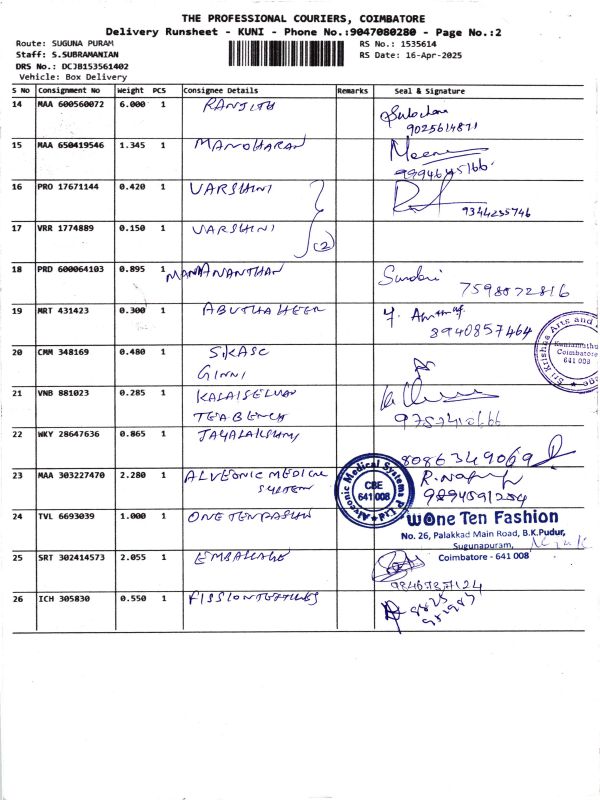 THE PROFESSIONAL COURIERS, COIMBATORE
Delivery Runsheet - KUNI - Phone No.:9047080280 - Page No.:2
Route: SUGUNA PURAM
Staff: S.SUBRAMANIAN
DRS No.: DCJB153561402
Vehicle: Box Delivery
RS No.: 1535614
RS Date: 16-Apr-2025
S No Consignment No Weight PCS Consignee Details Remarks Seal & Signature
14 MAA 600560072 6.000 1 RANJITH
9025614871
15 MAA 650419546 1.345 1 MANOHARAN Meena
9994645166
16 PRO 17671144 0.420 1 VARSHINI
9344235746
17 VRR 1774889 0.150 1 VARSHINI (2)
18 PRD 600064103 0.895 1 Sundari
7598072816
19 MRT 431423 0.300 1 ABUTHAHEER
8940857464
20 CMM 348169 0.480 1 SKASC
GINNI
Sri Krishna Arts and
Coimbatore
641 008
21 VNB 881023 0.285 1 KALAISELVAN
TEABENCH
22 WKY 28647636 0.865 1 JAYALAKSHMI
8086349069
23 MAA 303227470 2.280 1 ALVEONIC MEDICAL
SYSTEM
Alveonic Medical Systems P Ltd
CBE
641 008
9894591254
24 TVL 6693039 1.000 1 ONETENFASHN
One Ten Fashion
No. 26, Palakkad Main Road, B.K.Pudur,
Sugunapuram,
Coimbatore - 641 008
25 SRT 302414573 2.055 1 EMBALLAGE
26 ICH 305830 0.550 1 FISSIONTEXTILES